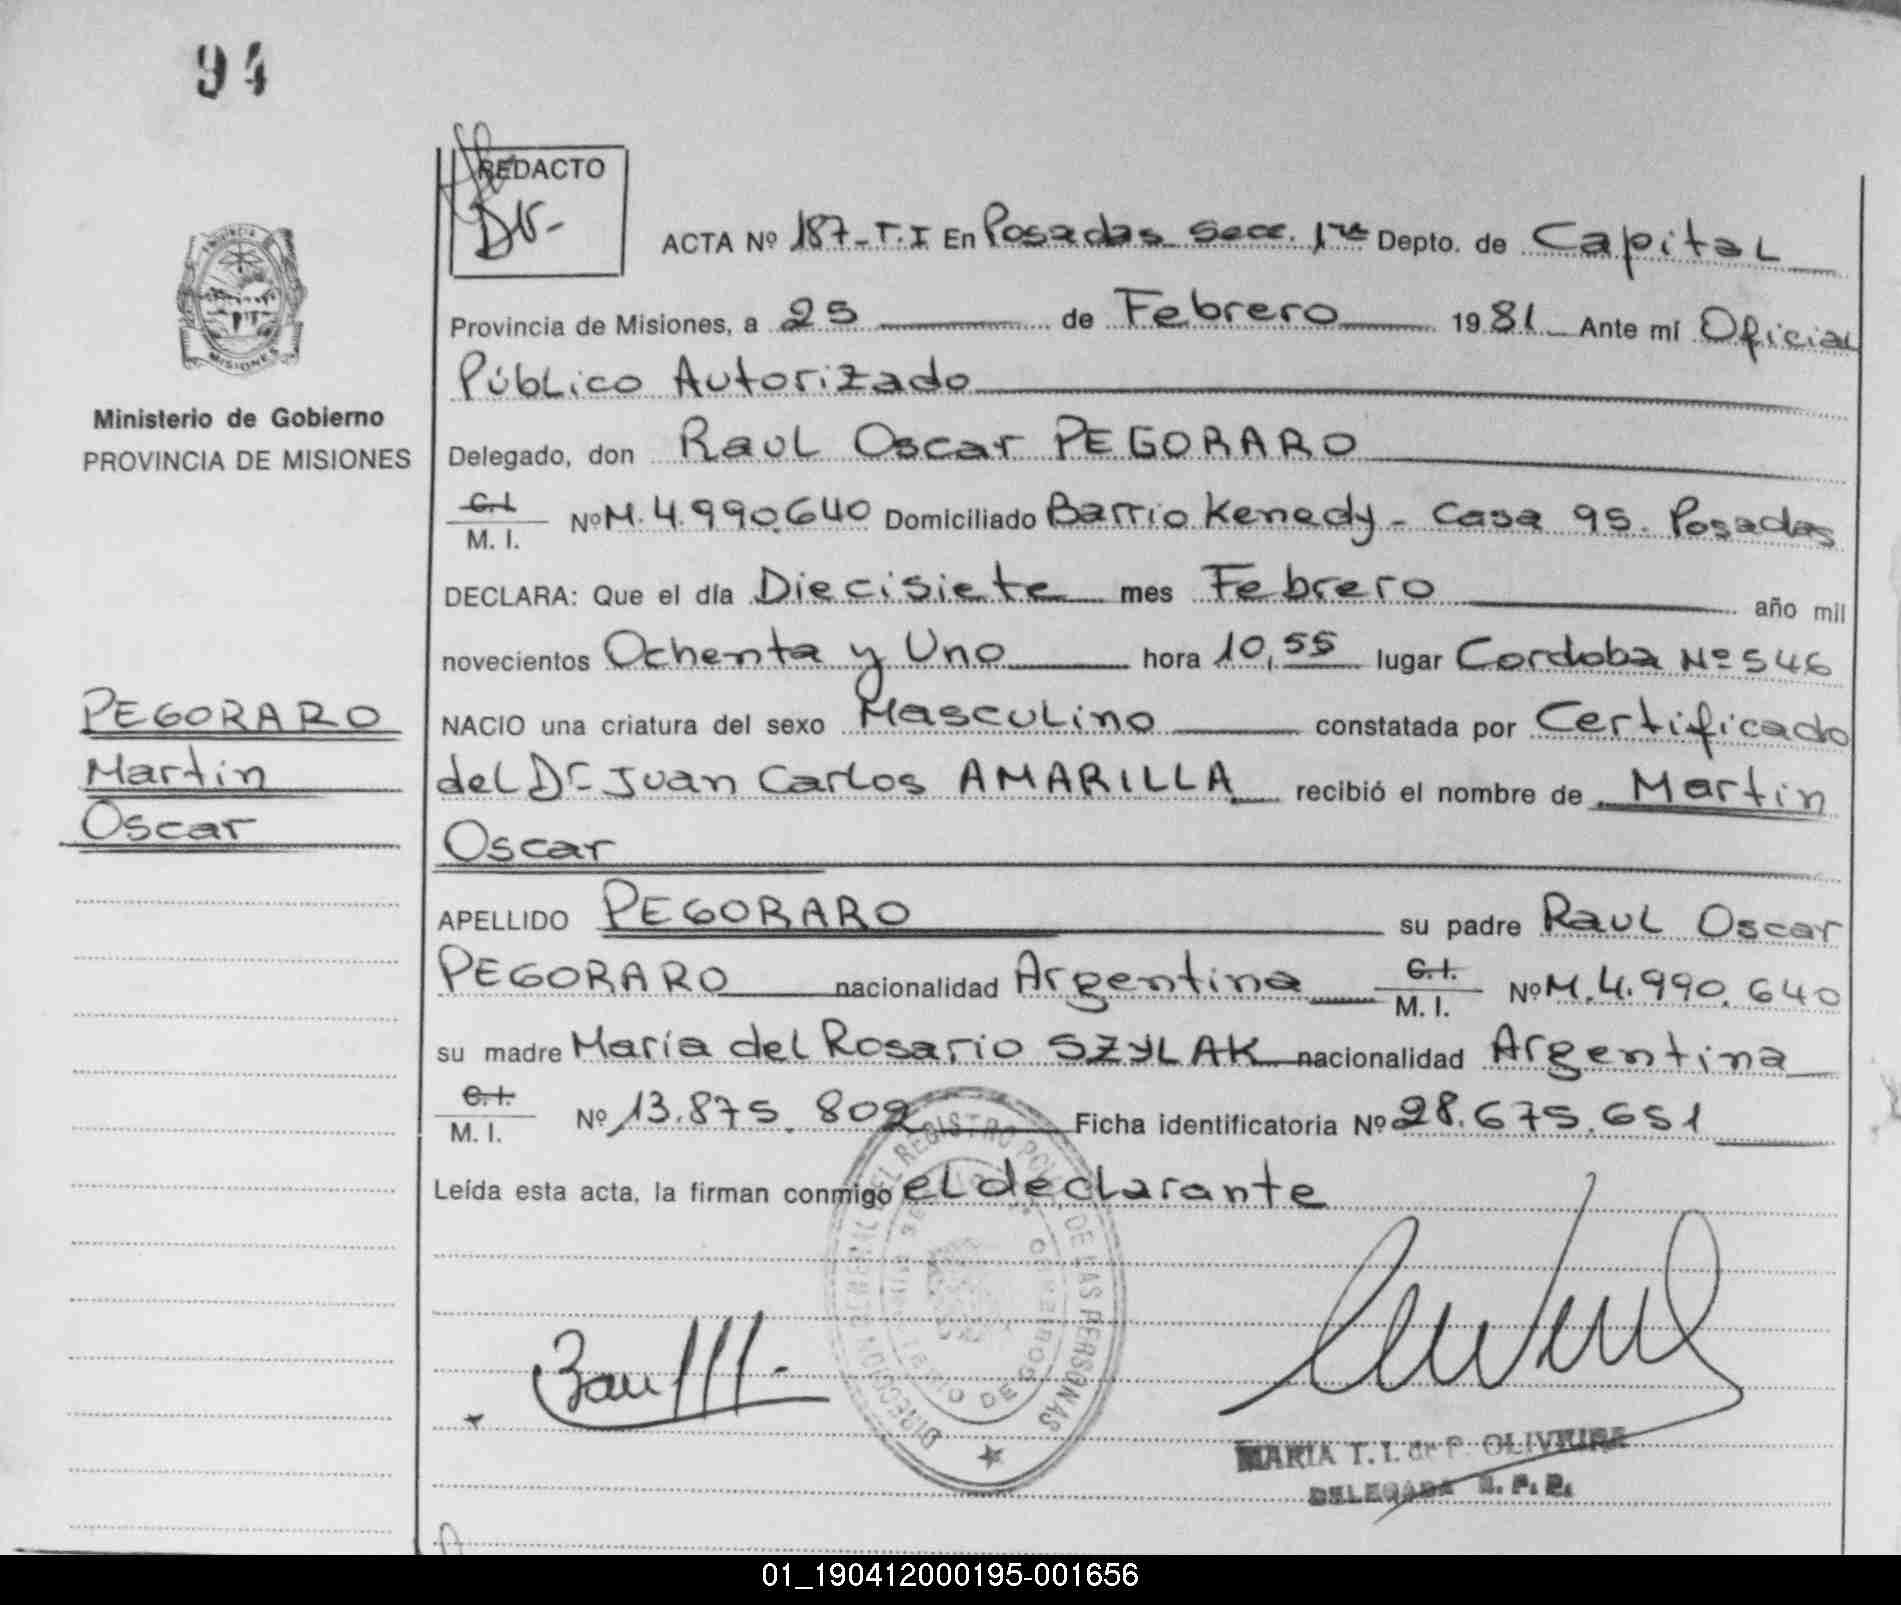 94
REDACTO
ACTA Nº 187-T.I En Posadas Secc. 1ra Depto. de Capital
Provincia de Misiones, a 25 de Febrero 1981 Ante mí Oficial
Público Autorizado
PROVINCIA
MISIONES
Ministerio de Gobierno
PROVINCIA DE MISIONES
Delegado, don Raul Oscar PEGORARO
C.I. M. I. Nº M. 4.990.640 Domiciliado Barrio Kenedy - Casa 95. Posadas
DECLARA: Que el día Diecisiete mes Febrero año mil
novecientos Ochenta y Uno hora 10,55 lugar Cordoba Nº 546
PEGORARO
Martin
Oscar
NACIO una criatura del sexo Masculino constatada por Certificado
del Dr. Juan Carlos AMARILLA recibió el nombre de Martin
Oscar
APELLIDO PEGORARO su padre Raul Oscar
PEGORARO nacionalidad Argentina C.I. M. I. Nº M. 4.990.640
su madre María del Rosario SZYLAK nacionalidad Argentina
C.I. M. I. Nº 13.875.802 Ficha identificatoria Nº 28.675.651
Leída esta acta, la firman conmigo el declarante
DIRECCION GENERAL DEL REGISTRO DE LAS PERSONAS
DE GOBIERNO
MARIA T. I. de P. OLIVEIRA
DELEGADA R. P. P.
01_190412000195-001656